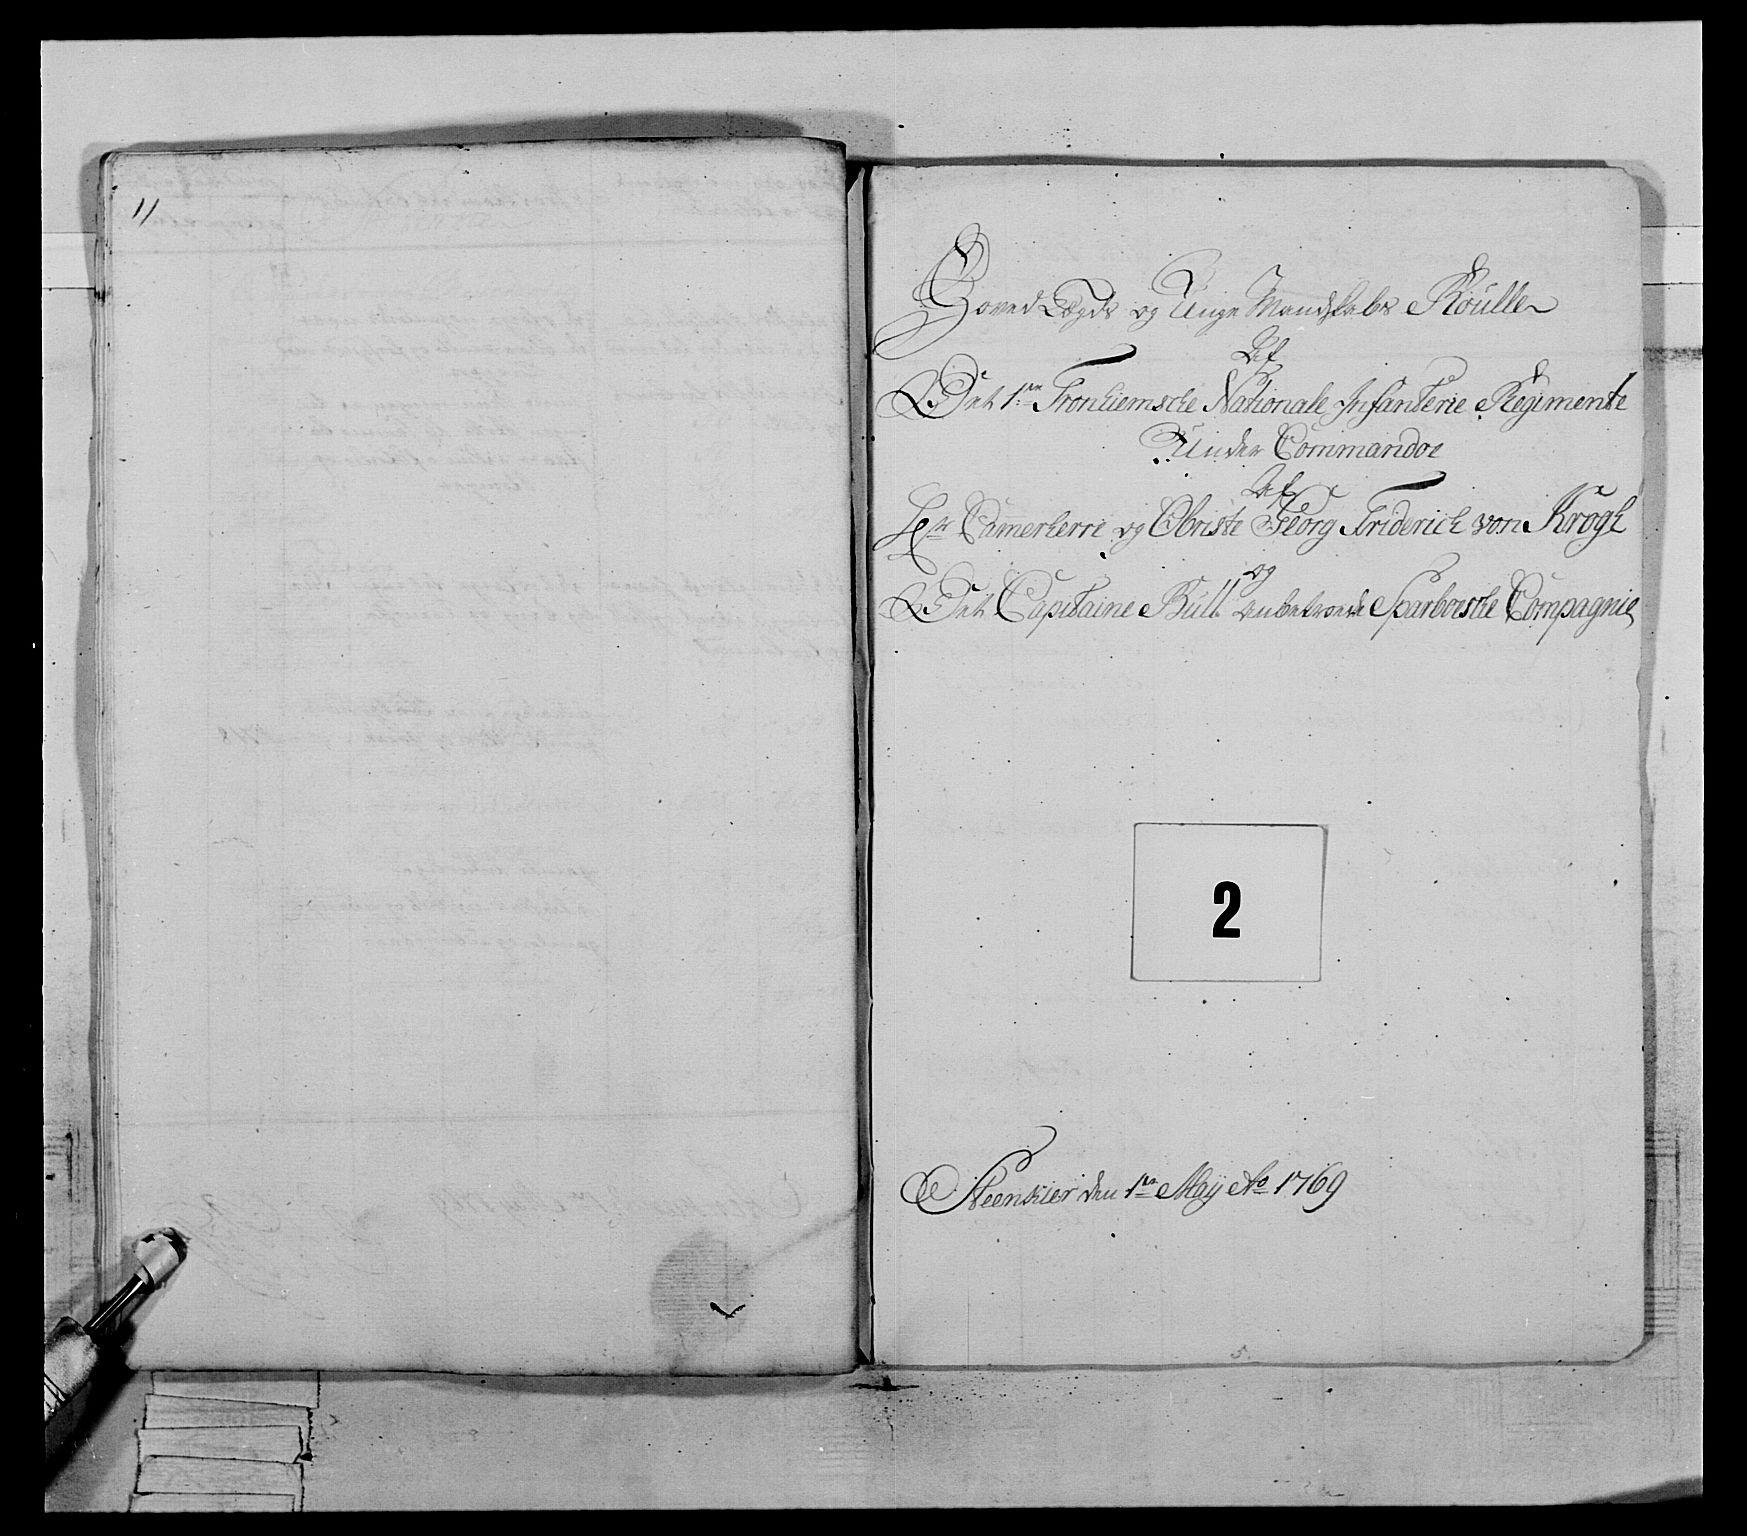 11
Hoved Lægds og Unge Mandskabs Roulle
Af
Det 1ste Tronhiemsche Nationale Infanterie Regimente
Under Commandoe
Af
Hr Camerherre og Obriste Georg Friderich von Krogh
og
Det Capitaine Bull anbetroede Sparboesche Compagnie
2
Steenkier den 1te Maÿ Ao 1769
5.